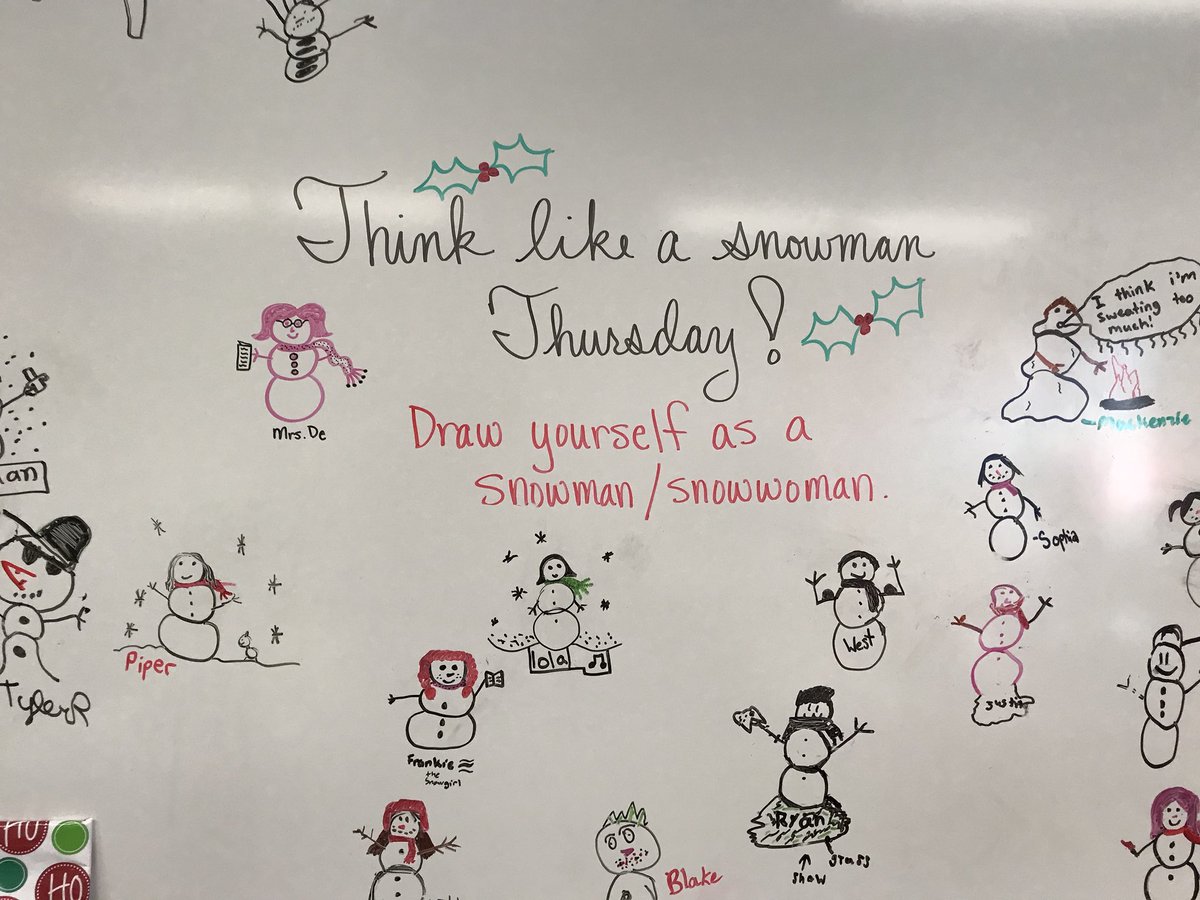 Think like a snowman
Thursday!
Draw yourself as a
snowman/snowwoman.
Mrs. De
I think i'm
sweating too
much!
-Mackenzie
-Sophia
an
Tyler R
Piper
lola
West
Justin
Frankie
the
Snowgirl
Ryan
snow
grass
Blake
HO
HO